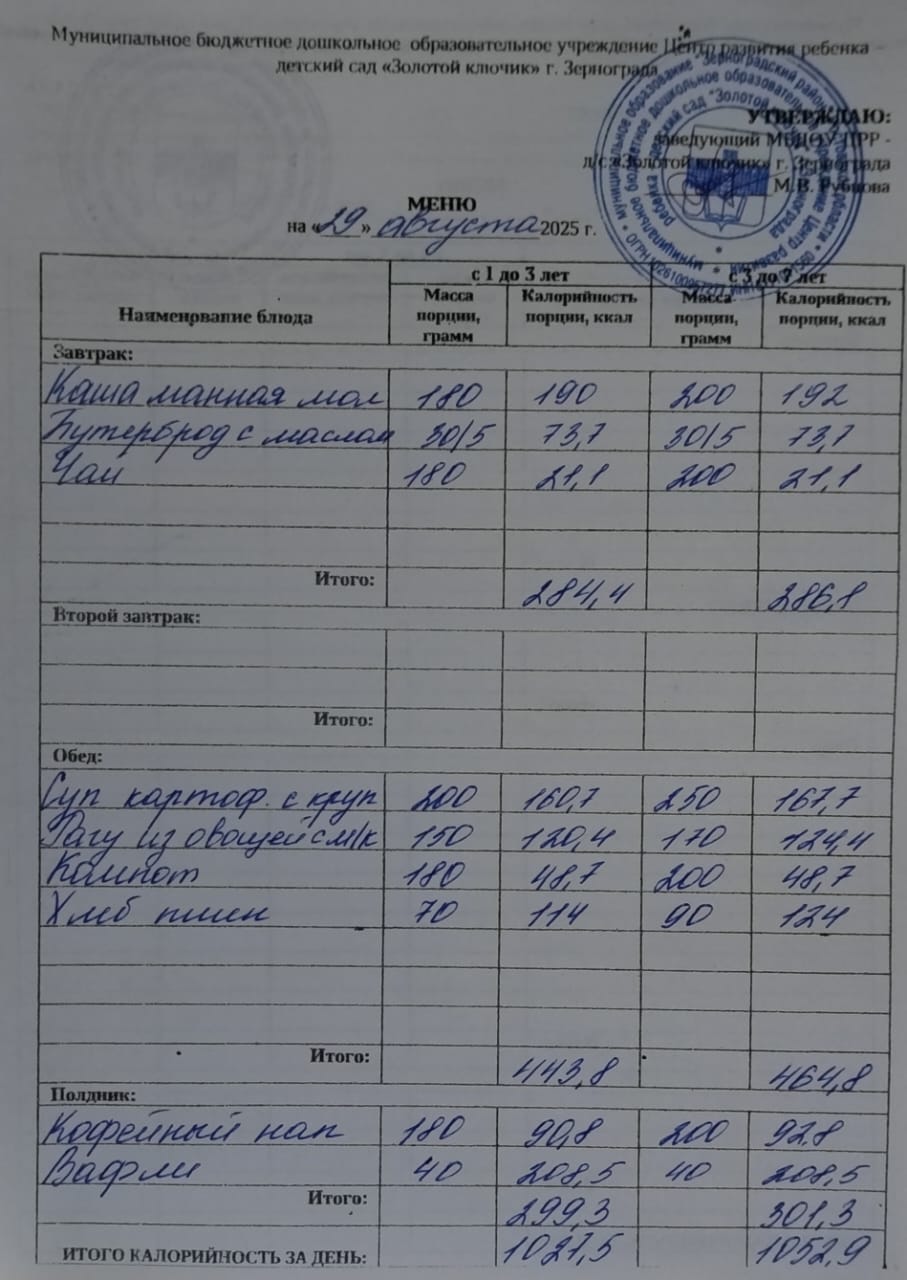 Муниципальное бюджетное дошкольное образовательное учреждение Центр развития ребенка –
детский сад «Золотой ключик» г. Зернограда
УТВЕРЖДАЮ:
заведующий МБДОУ ЦРР -
д/с «Золотой ключик» г. Зернограда
М.В. Рубцова
МЕНЮ
на «29» августа 2025 г.
Наименование блюда с 1 до 3 лет с 3 до 7 лет
Масса порции, грамм Калорийность порции, ккал Масса порции, грамм Калорийность порции, ккал
Завтрак:
Каша манная мол 180 190 200 192
Бутерброд с маслом 30/5 73,7 30/5 73,7
Чай 180 21,1 200 21,1
Итого: 284,4 286,8
Второй завтрак:
Итого:
Обед:
Суп картоф. с круп 200 160,7 250 167,7
Рагу из овощей с м/к 150 120,4 170 124,4
Компот 180 48,7 200 48,7
Хлеб пшен 70 114 90 124
Итого: 443,8 464,8
Полдник:
Кофейный нап 180 90,8 200 92,8
Вафли 40 208,5 40 208,5
Итого: 299,3 301,3
ИТОГО КАЛОРИЙНОСТЬ ЗА ДЕНЬ: 1027,5 1052,9